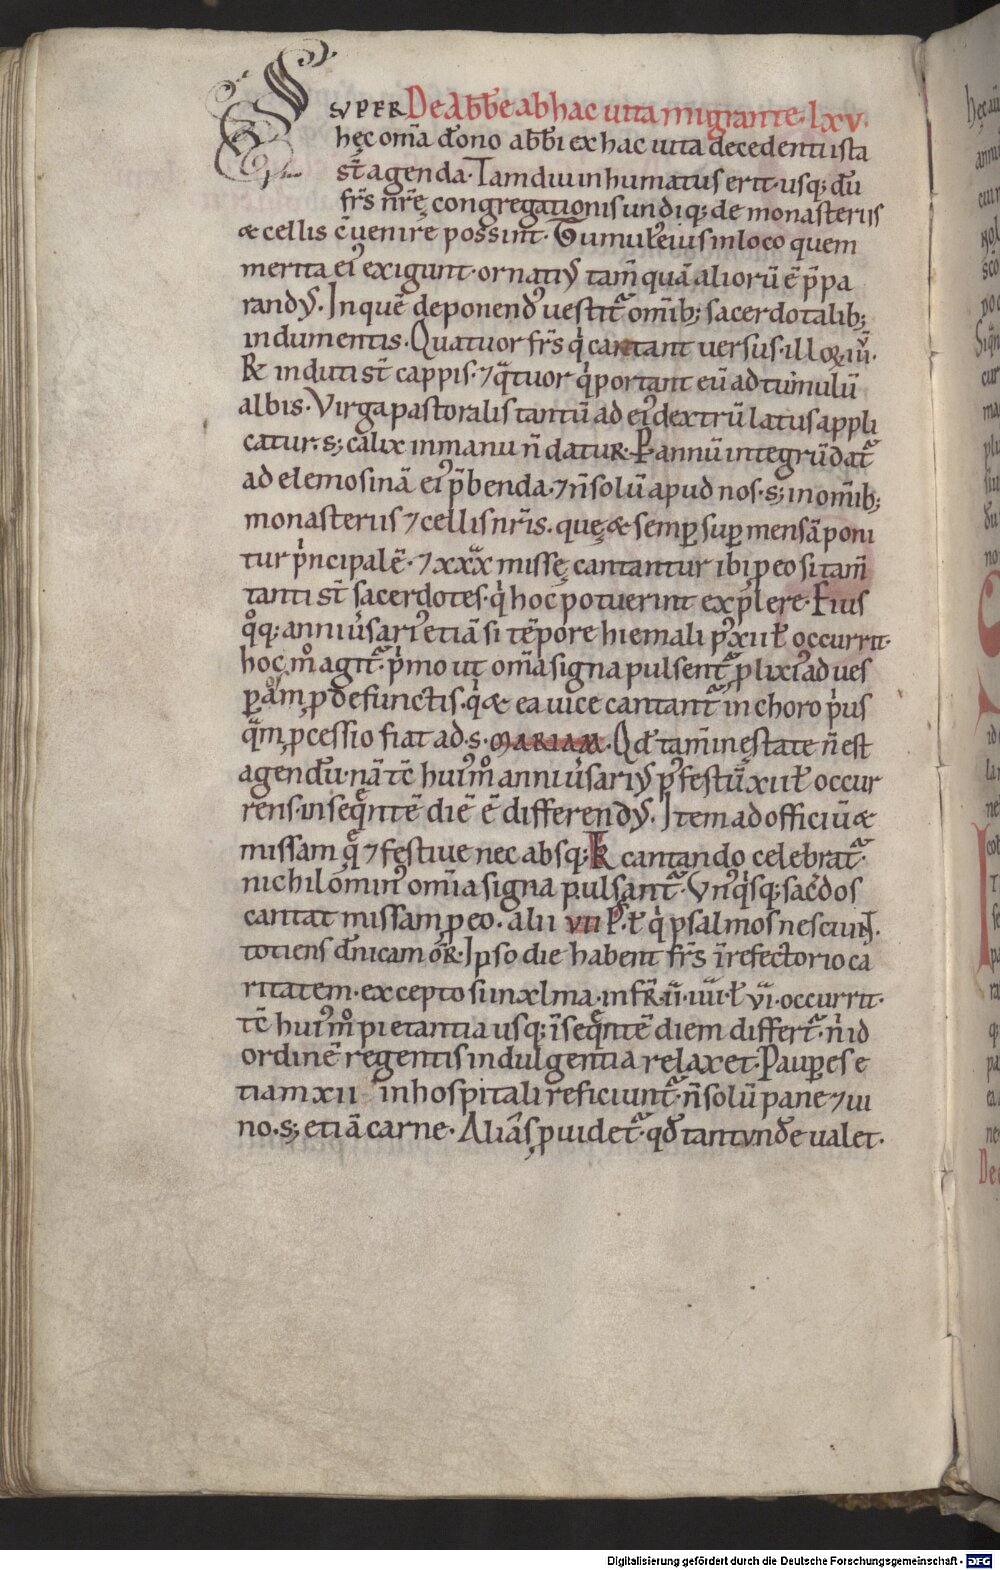 SUPER De Abb̄e ab hac uita migrante · lxv ·
hęc om̄a d̄ono abb̄i ex hac uita decedenti ista
st̄ agenda · Tamdiu inhumatus erit · usq; dū
fr̄s nr̄ę congregationis undiq; de monasteriis
æ cellis c̄uenire possint · Tumul' eius in loco quem
merita ei' exigunt · ornati' tam̄ quā alioru̅ ē p̄pa
rand' · In quē deponend' uestit᷑ om̄ib; sacerdotalib;
indumentis · Quatuor fr̄s q' cantant uersus · ill
& induti st̄ cappis · ⁊ q᷑tuor q' portant eū ad tumulū
albis · Virga pastoralis tantū ad ei' dextrū latus appli
catur · s; calix in manu n̄ datur · P annū integrū dat᷑
ad elemosinā ei' p̄benda · ⁊ n̄ solū apud nos · s; in om̄ib;
monasteriis ⁊ cellis nr̄is · quę æ semꝑ suꝑ mensā poni
tur p'ncipalē · ⁊ xxx missę cantantur ibi ꝑ eo si tam̄
tanti st̄ sacerdotes · q' hoc potuerint explere · Eius
q°q; anniu'sari' etiā si tēpore hiemali p' xii ł occurrit ·
hoc m° agit᷑ · p'mo ut om̄a signa pulsent᷑ ꝓlixi' ad ues
ꝑam ꝓ defunctis · q' æ ea uice cantant᷑ in choro p'us
q᷑m ꝓcessio fiat ad · s · MARIAM · Qd̄ tam̄ in ęstate n̄ est
agendū · nā tc̄ hui'm° anniu'sari' p' festū xii ł occur
rens · in seq̄ntē diē ē differend' · Item ad officiū æ
missam q̄ ⁊ festiue nec absq; k cantando celebrat᷑ ·
nichilomin' om̄ia signa pulsant᷑ · Vn'q'sq; sac'dos
cantat missam ꝑ eo · alii vii Ps · ł q' psalmos nesciunt ·
totiens d̄nicam or̄ · Ipso die habent fr̄s ī refectorio ca
ritatem · excepto si in xlma · in fr̄ · ii · iiii · ł vi · occurrit ·
tc̄ hui'm° pietantia usq; ī seq̄ntē diem differt᷑ · n' id
ordinē regentis indulgentia relaxet · Pauꝑes e
tiam xii in hospitali reficiunt᷑ · n̄ solū pane ⁊ ui
no · s; etiā carne · Aliās ꝓuidet᷑ · qd̄ tantunde ualet ·
Digitalisierung gefördert durch die Deutsche Forschungsgemeinschaft - DFG